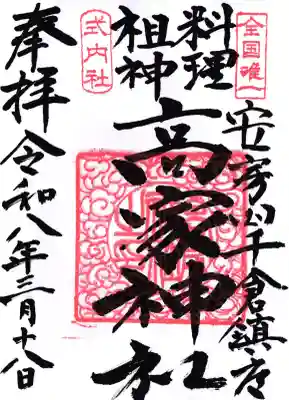 全国唯一
安房ノ千倉鎮座
料理
祖神
高家神社
式内社
奉拝
令和八年三月十八日